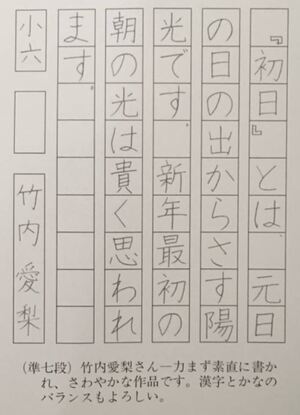 『初日』とは、元日
の日の出からさす陽
光です。新年最初の
朝の光は貴く思われ
ます。
小六 竹内愛梨
(準七段) 竹内愛梨さん―力まず素直に書か
れ、さわやかな作品です。漢字とかなの
バランスもよろしい。